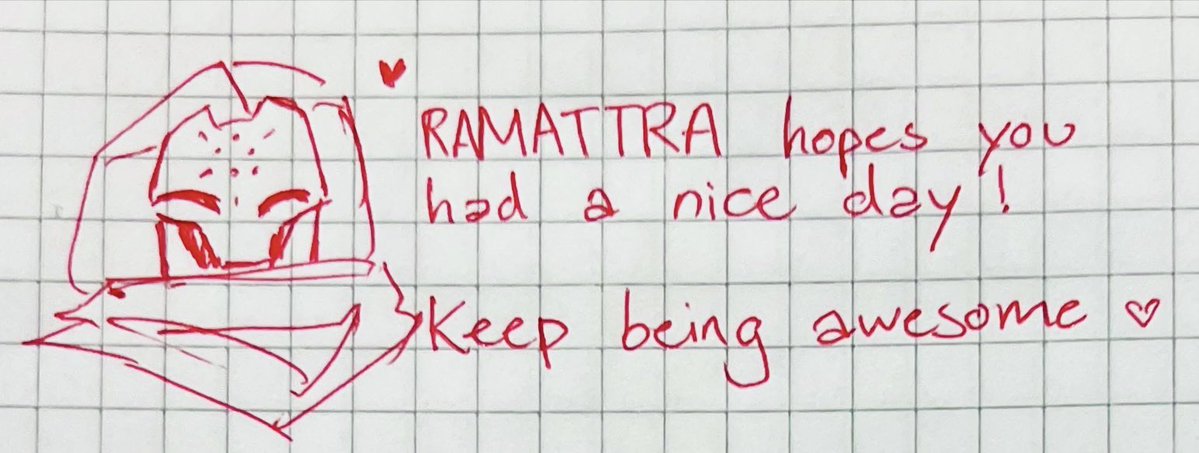 RAMATTRA hopes you
had a nice day!
Keep being awesome ♡